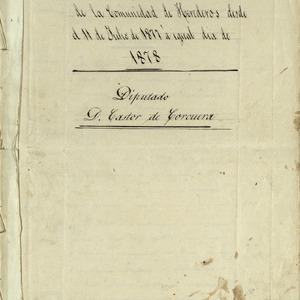 de la Comunidad de Herederos desde
el 11 de Julio de 1877 á igual dia de
1878
Diputado
D. Castor de Corcuera